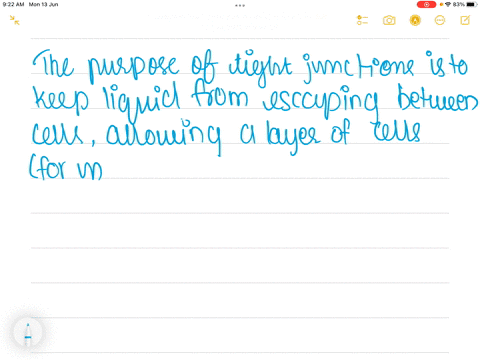 9:22 AM Mon 13 Jun
83%
The purpose of tight junctions is to
keep liquid from esccuping between
cells, allowing a layer of cells
(for in